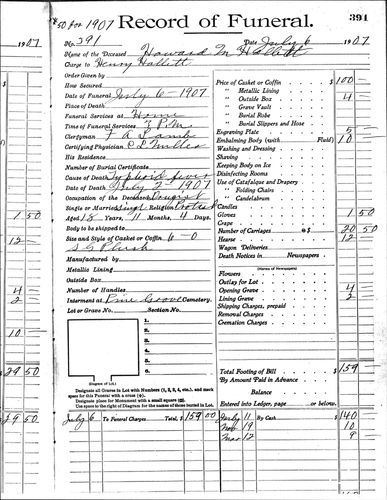 $50 for 1907
Record of Funeral.
391
1907
No. 391
Date July 6 1907
Name of the Deceased Howard M Hallett
Charge to Henry Hallett
Order Given by
How Secured
Date of Funeral July 6 - 1907
Place of Death
Funeral Services at Home
Time of Funeral Services 2 P.M.
Clergyman F A Lamb
Certifying Physician
His Residence
Number of Burial Certificate
Cause of Death Typhoid fever
Date of Death July 2 - 1907
Occupation of the Deceased
Single or Married Singl Religion
Aged 18 Years, 11 Months, 4 Days.
Body to be shipped to
Size and Style of Casket or Coffin 6-0
S G Plush
Manufactured by
Metallic Lining
Outside Box
Number of Handles
Interment at Pine Grove Cemetery.
Lot or Grave No. Section No.
1.
2.
3.
4.
5.
6.
(Diagram of Lot.)
Designate all Graves in Lot with Numbers (1, 2, 3, 4, etc.), and mark
spot for this Funeral with a cross
Designate place for Monument with a small square
Use space to the right of Diagram for the names of those buried in Lot.
July 6 To Funeral Charges Total, $ 159 00
Price of Casket or Coffin $ 100
" Metallic Lining
" Outside Box 4
" Grave Vault
" Burial Robe
" Burial Slippers and Hose
Engraving Plate 5
Embalming Body (with Fluid) 10
Washing and Dressing
Shaving
Keeping Body on Ice
Disinfecting Rooms
Use of Catafalque and Drapery
" Folding Chairs
" Candelabrum
Candles
Gloves 1 50
Crape
Number of Carriages @ $ 20 50
Hearse 12
Wagon Deliveries
Death Notices in Newspapers
(Names of Newspapers)
Flowers
Outlay for Lot 4
Opening Grave 4
Lining Grave 2
Shipping Charges, prepaid
Removal Charges
Cremation Charges
Total Footing of Bill $ 159
By Amount Paid in Advance
Balance
Entered into Ledger, page or below.
July 11 By Cash $ 140
Nov 19 10
Mar 12 9
1 50
12
4
2
10
29 50